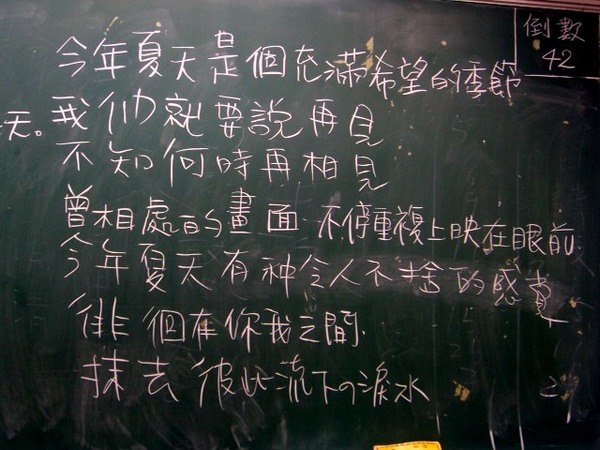 倒數
42
今年夏天是個充滿希望的季節
我们就要說再見
天。
不知何時再相見
曾相處的畫面 不停重複上映在眼前
今年夏天有种令人不捨的感覺
徘徊在你我之間.
抹去彼此流下の淚水